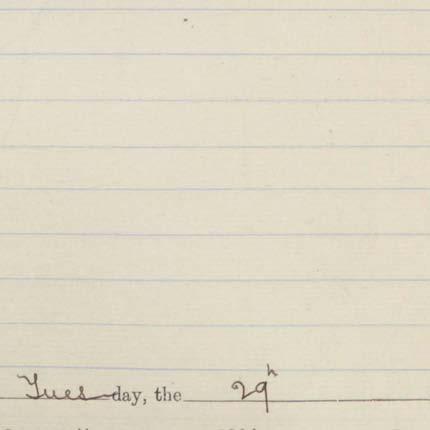 Tuesday, the 29h